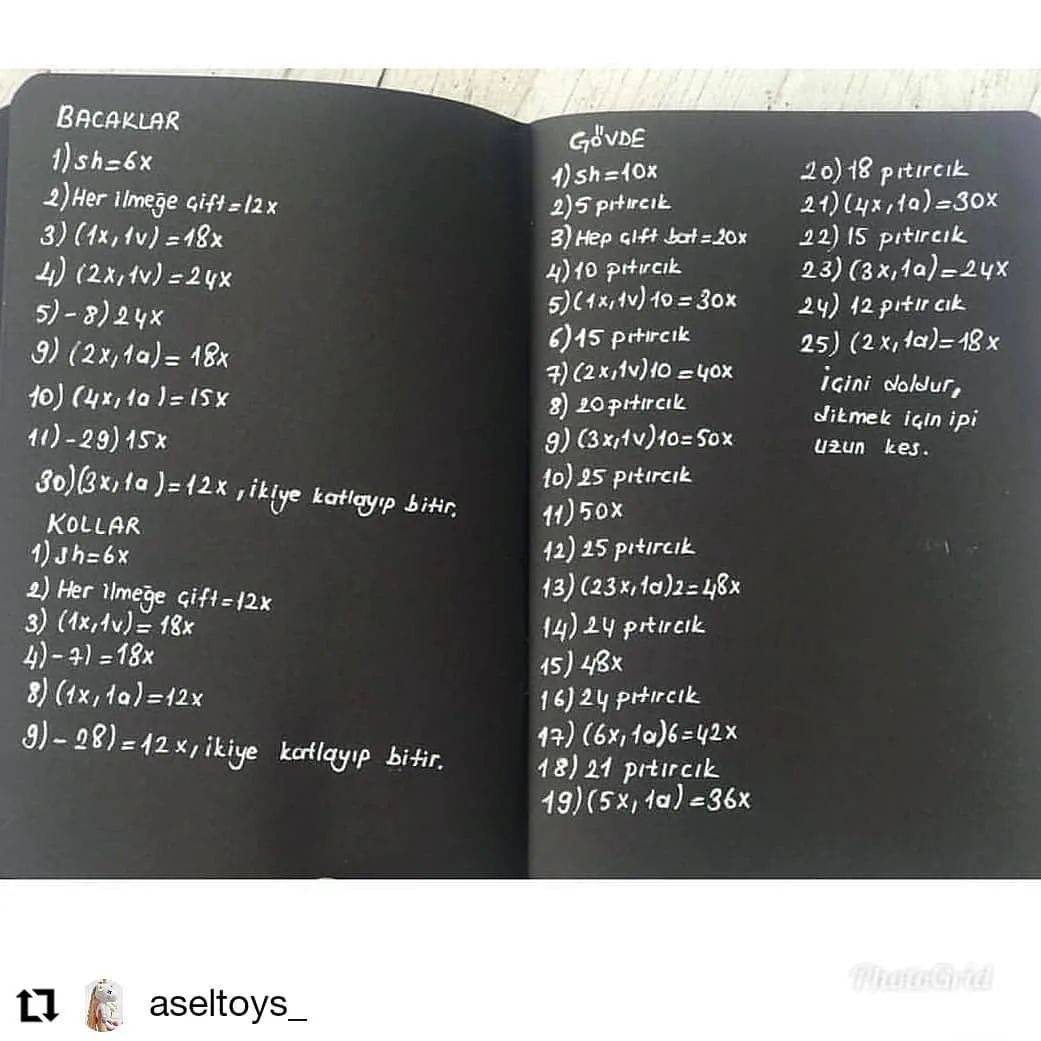 BACAKLAR
1) sh=6x
2) Her ilmeğe çift=12x
3) (1x, 1v) = 18x
4) (2x, 1v) = 24x
5) - 8) 24x
9) (2x, 1a) = 18x
10) (4x, 1a) = 15x
11) - 29) 15x
30) (3x, 1a) = 12x, ikiye katlayıp bitir.
KOLLAR
1) sh=6x
2) Her ilmeğe çift=12x
3) (1x, 1v) = 18x
4) - 7) = 18x
8) (1x, 1a) = 12x
9) - 28) = 12x, ikiye katlayıp bitir.
GÖVDE
1) sh=10x
2) 5 pıtırcık
3) Hep çift bat=20x
4) 10 pıtırcık
5) (1x, 1v) 10 = 30x
6) 15 pıtırcık
7) (2x, 1v) 10 = 40x
8) 20 pıtırcık
9) (3x, 1v) 10 = 50x
10) 25 pıtırcık
11) 50x
12) 25 pıtırcık
13) (23x, 1a) 2 = 48x
14) 24 pıtırcık
15) 48x
16) 24 pıtırcık
17) (6x, 1a) 6 = 42x
18) 21 pıtırcık
19) (5x, 1a) = 36x
20) 18 pıtırcık
21) (4x, 1a) = 30x
22) 15 pıtırcık
23) (3x, 1a) = 24x
24) 12 pıtırcık
25) (2x, 1a) = 18x
içini doldur,
dikmek için ipi
uzun kes.
PhotoGrid
aseltoys_